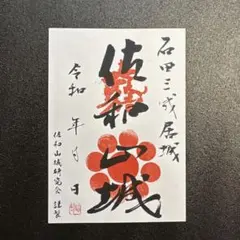 石田三成居城
佐和山城
令和 年 月 日
佐和山城研究会 謹製